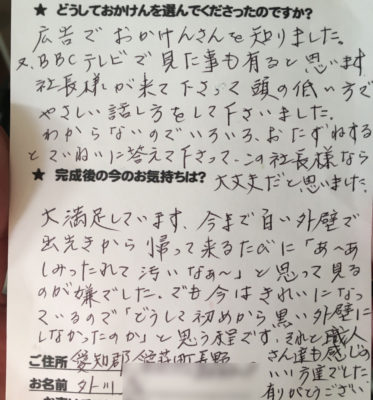 ★ どうしておかけんを選んでくださったのですか?
広告でおかけんさんを知りました。
又、BBCテレビで見た事も有ると思います
社長様が来て下さって頭の低い方で
やさしい話し方をして下さいました。
わからないのでいろいろ、おたずねする
とていねいに答えて下さって、この社長様なら
大丈夫だと思いました。
★ 完成後の今のお気持ちは?
大満足しています、今まで白い外壁で
出先きから帰って来るたびに「あ〜あ
しみったれて汚いなぁ〜」と思って見る
のが嫌でした。でも今はきれいになっ
ているので「どうして初めから黒い外壁に
しなかったのか」と思う程です。それと職人
さん達も感じの
いい方達でとた
有りがとうござい
ご住所 愛知郡 荘町長野
お名前 外川